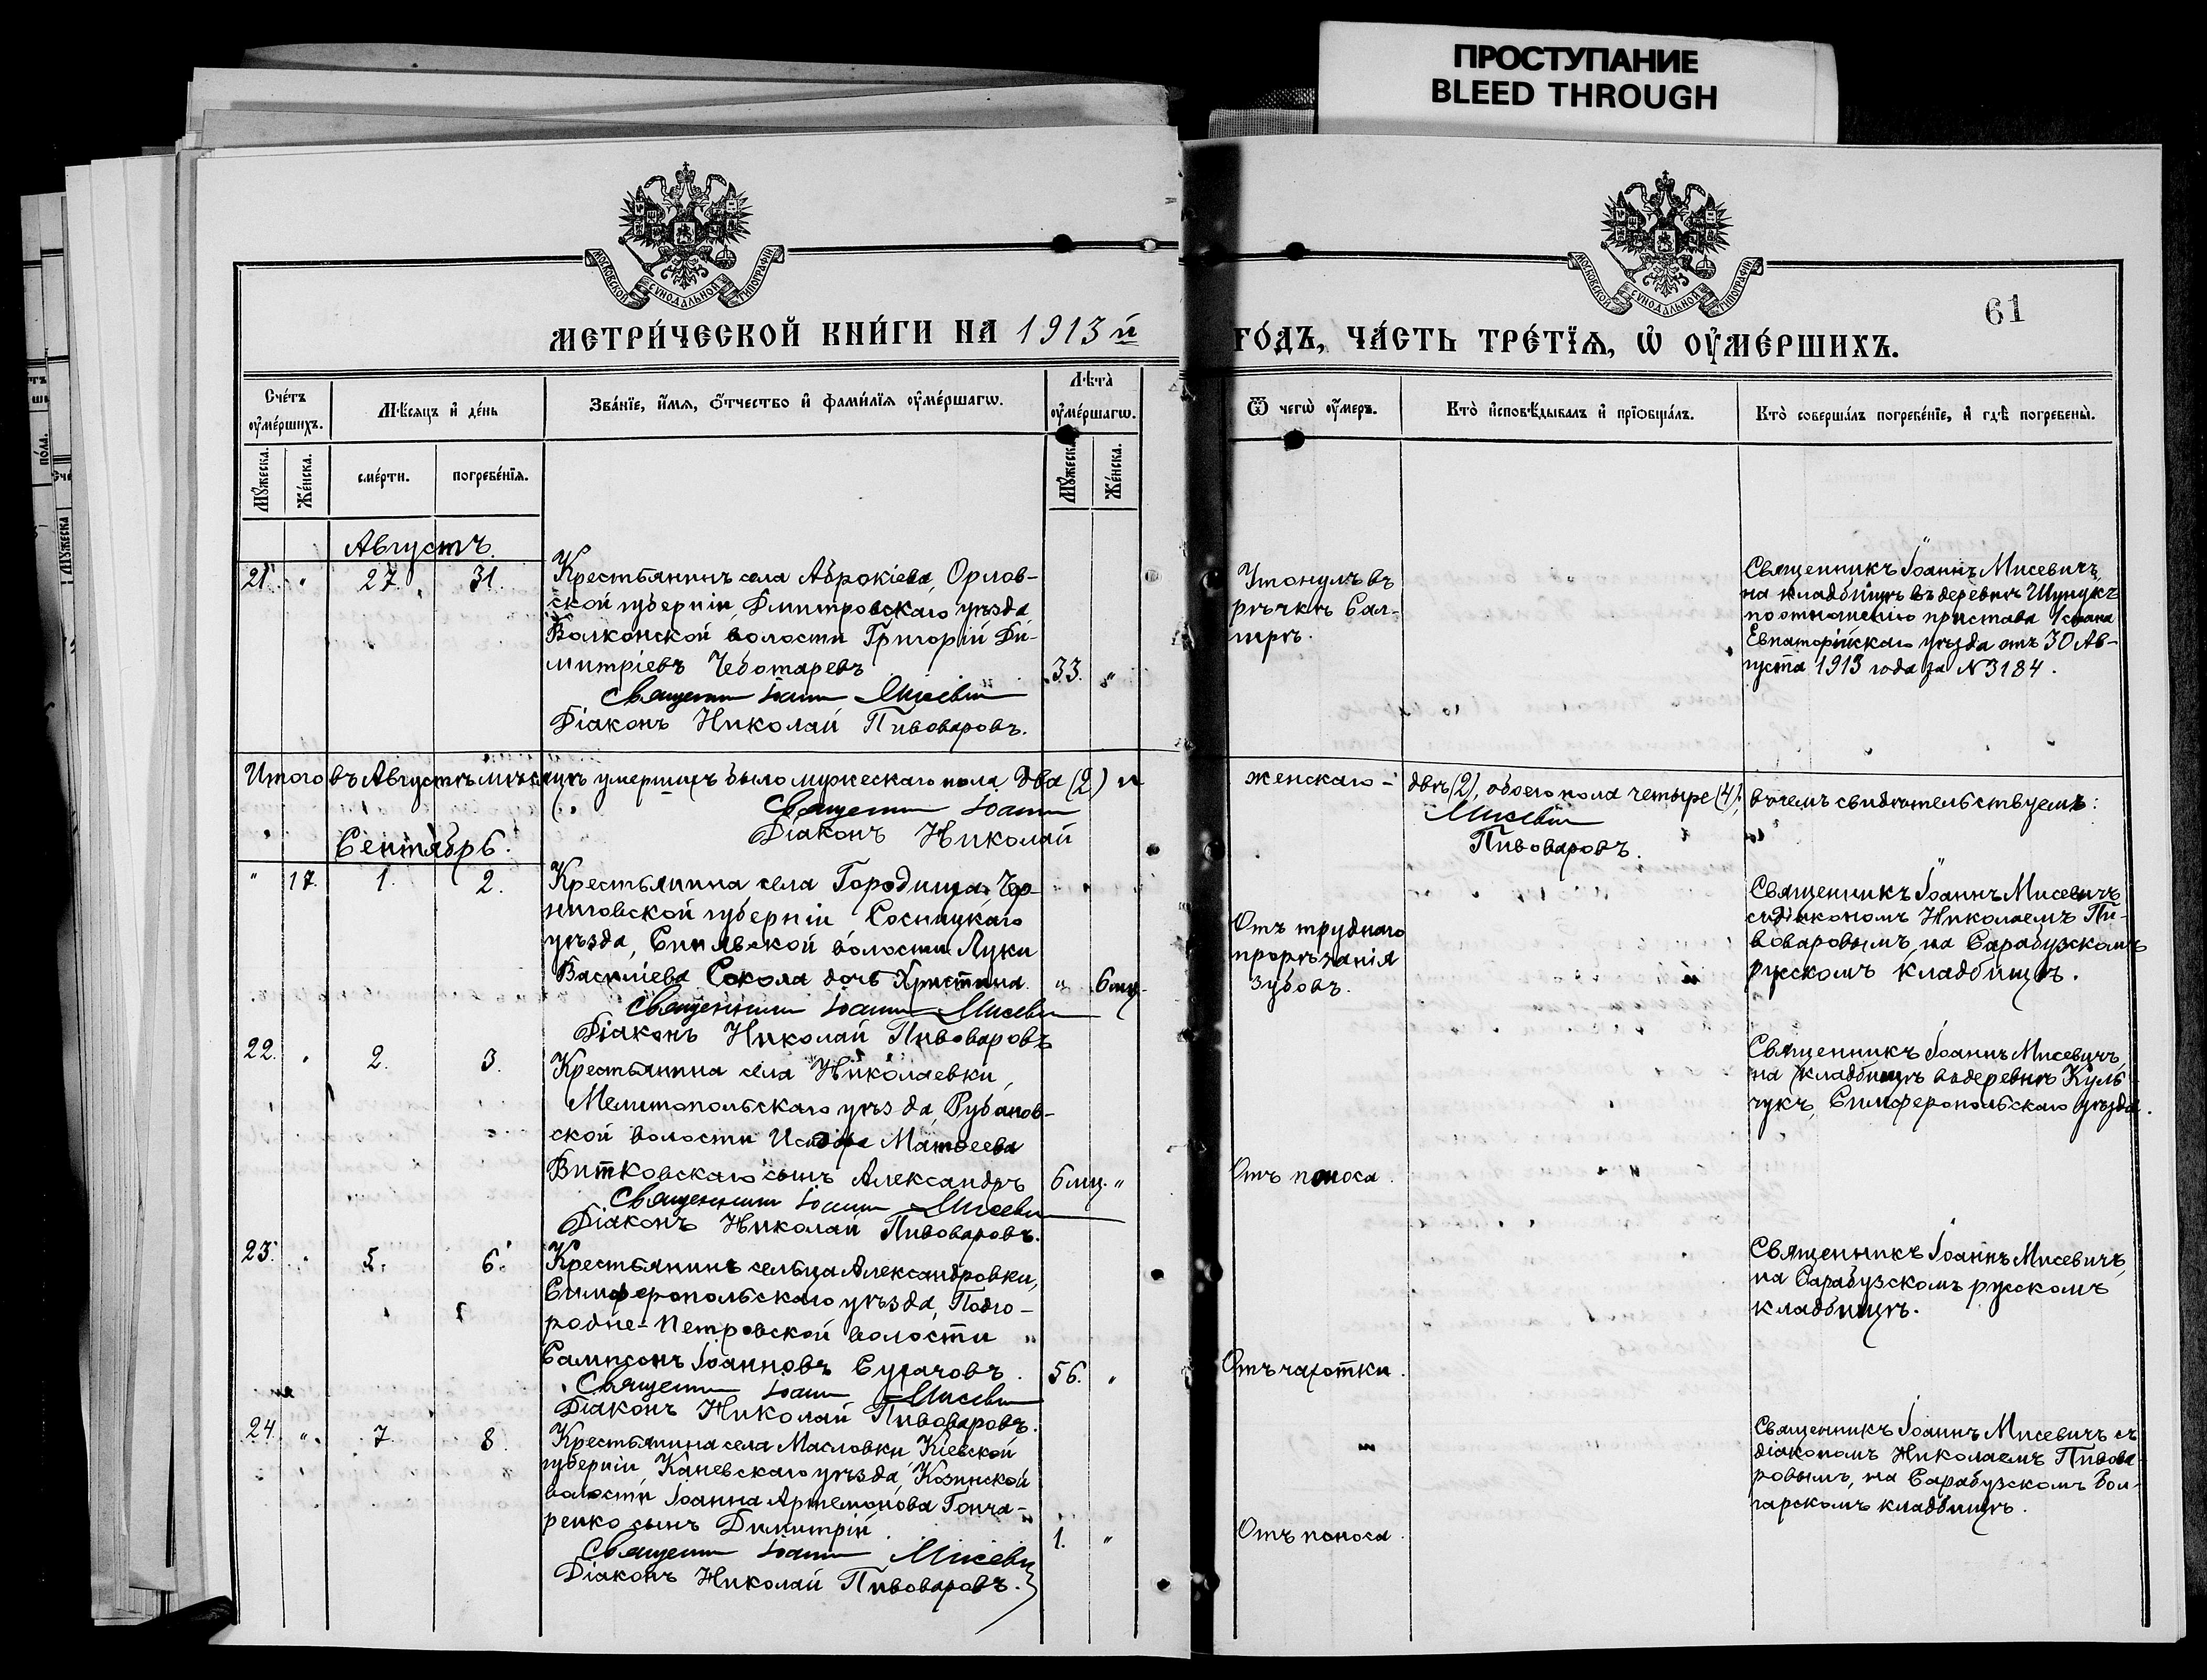 ПРОСТУПАНИЕ
BLEED THROUGH
МОСКОВСКОЙ СѴНОДАЛЬНОЙ ТИПОГРАФІИ
МОСКОВСКОЙ СѴНОДАЛЬНОЙ ТИПОГРАФІИ
61
МЕТРИ́ЧЕСКОЙ КНИ́ГИ НА 1913 й
ГО́ДЪ, ЧА́СТЬ ТРЕ́ТЇѦ, Ѡ҆ ОУ҆МЕ́РШИХЪ.
Сче́тъ оу҆ме́ршихъ.
Мѣ́сѧцъ и҆ де́нь
Зва́нїе, и҆́мѧ, ѻ҆́тчество и҆ фами́лїѧ оу҆ме́ршагѡ.
Лѣ́та оу҆ме́ршагѡ.
Ѿ чегѡ̀ оу҆́меръ.
Кто̀ и҆сповѣ́дывалъ и҆ прїѡбща́лъ.
Кто̀ соверша́лъ погребе́нїе, и҆ гдѣ̀ погребены̀.
Мꙋ́жеска.
Же́нска.
сме́рти.
погребе́нїѧ.
Мꙋ́жеска.
Же́нска.
Августъ.
21. " 27. 31.
Крестьянинъ села Аврокіева, Орлов-
ской губерніи, Дмитровскаго уѣзда
Волконской волости Григорій Ди-
митріевъ Чеботаревъ
33. "
Священникъ Іоаннъ Мисевичъ
Діаконъ Николай Пивоваровъ.
Утонулъ въ
рѣчкѣ Сал-
гирѣ.
Священникъ Іоаннъ Мисевичъ,
на кладбищѣ въ деревнѣ Шунукъ
по отношенію пристава 1 стана
Евпаторійскаго уѣзда отъ 30 Ав-
густа 1913 года за N 3184.
Итого въ Августѣ мѣсяцѣ умершихъ было мужескаго пола два (2) и
женскаго - двѣ (2), обоего пола четыре (4); въ чемъ свидѣтельствуемъ:
Священникъ Іоаннъ Мисевичъ
Діаконъ Николай Пивоваровъ.
Сентябрь.
" 17. 1. 2.
Крестьянина села Городища, Чер-
ниговской губерніи Сосницкаго
уѣзда, Синявской волости Луки
Василіева Сокола дочь Христина.
" 6 мц.
Священникъ Іоаннъ Мисевичъ
Діаконъ Николай Пивоваровъ
Отъ труднаго
прорѣзанія
зубовъ.
Священникъ Іоаннъ Мисевичъ
съ діакономъ Николаемъ Пи-
воваровымъ, на Сарабузскомъ
русскомъ кладбищѣ.
22. " 2. 3.
Крестьянина села Николаевки,
Мелитопольскаго уѣзда, Рубанов-
ской волости Исидора Матѳеева
Витковскаго сынъ Александръ
6 мц. "
Священникъ Іоаннъ Мисевичъ
Діаконъ Николай Пивоваровъ.
Отъ поноса.
Священникъ Іоаннъ Мисевичъ,
на кладбищѣ въ деревнѣ Куль-
чукъ, Симферопольскаго уѣзда.
23. " 5. 6.
Крестьянинъ сельца Александровки,
Симферопольскаго уѣзда, Подго-
родне-Петровской волости
Сампсонъ Іоанновъ Сугачовъ.
56. "
Священникъ Іоаннъ Мисевичъ
Діаконъ Николай Пивоваровъ.
Отъ чахотки.
Священникъ Іоаннъ Мисевичъ,
на Сарабузскомъ русскомъ
кладбищѣ.
24. " 7. 8.
Крестьянина села Масловки, Кіевской
губерніи, Каневскаго уѣзда, Козинской
волости Іоанна Артемонова Гонча-
ренко сынъ Димитрій.
1. "
Священникъ Іоаннъ Мисевичъ
Діаконъ Николай Пивоваровъ.
Отъ поноса.
Священникъ Іоаннъ Мисевичъ съ
діакономъ Николаемъ Пивова-
ровымъ, на Сарабузскомъ Бол-
гарскомъ кладбищѣ.